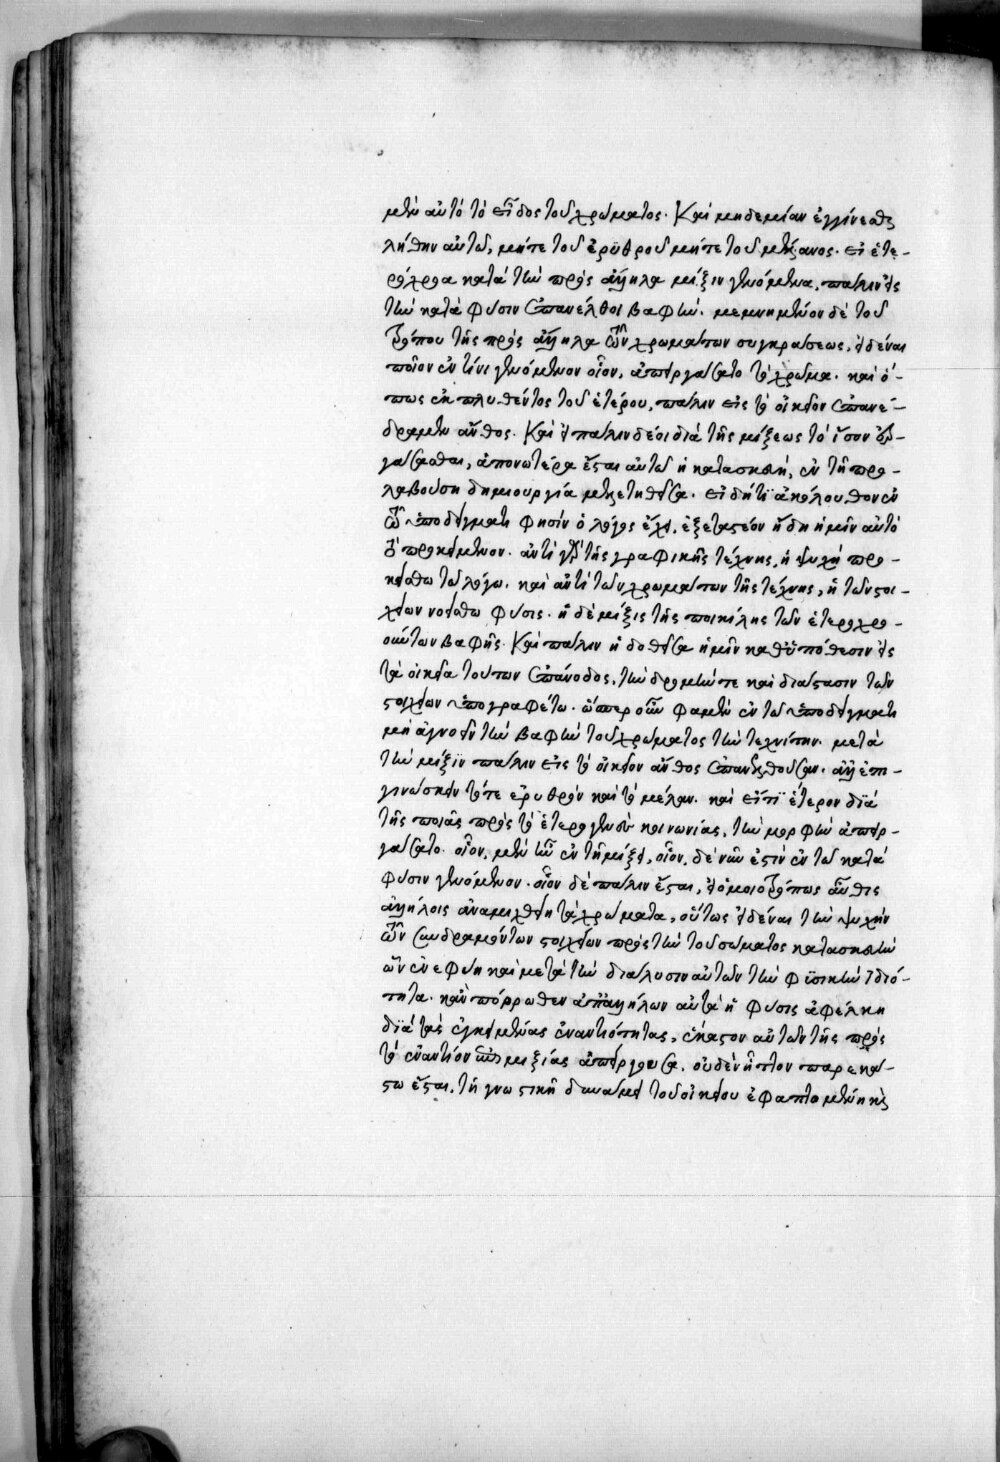 μὲν αὐτὸ τὸ εἶδος τοῦ χρώματος. Καὶ μηδεμίαν ἐγγίνεσθαι
λήθην αὐτῶ, μήτε τοῦ ἐρυθροῦ μήτε τοῦ μέλανος. εἰ ἑτε-
ρόχροα κατὰ τὴν πρὸς ἄλληλα μίξιν γενόμενα, πάλιν εἰς
τὴν κατὰ φύσιν ἐπανέλθοι βαφήν. μεμνημένον δὲ τοῦ
τρόπου τῆς πρὸς ἄλληλα τῶν χρωμάτων συγκράσεως, εἰδέναι
ποῖον ἐν τίνι γενόμενον οἷον, ἀπειργάσατο τὸ χρῶμα. καὶ ὅ-
πως ἐκπλυθέντος τοῦ ἑτέρου, πάλιν εἰς τὸ οἰκεῖον ἐπανέ-
δραμεν ἄνθος. Καὶ εἰ πάλιν δέοι διὰ τῆς μίξεως τὸ ἴσον ἐρ-
γάσασθαι, ἀπονωτέρα ἔσται αὐτῶ ἡ κατασκευὴ, ἐν τῇ προ-
λαβούσῃ δημιουργία μελετηθεῖσα. εἰ δή τι ἀκόλουθον ἐν
τῶ ὑποδείγματι φησὶν ὁ λόγος ἔχει, ἐξεταστέον ἤδη ἡμῖν αὐτὸ
τὸ προκείμενον. ἀντὶ γὰρ τῆς γραφικῆς τέχνης, ἡ ψυχὴ προ-
κείσθω τῶ λόγω. καὶ ἀντὶ τῶν χρωμάτων τῆς τέχνης, ἡ τῶν στοι-
χείων νοείσθω φύσις. ἡ δὲ μίξις τῆς ποικίλης τῶν ἑτεροχρο-
ούντων βαφῆς. Καὶ πάλιν ἡ δοθεῖσα ἡμῖν καθ' ὑπόθεσιν εἰς
τὰ οἰκεῖα τούτων ἐπάνοδος, τὴν δρομήν τε καὶ διάστασιν τῶν
στοιχείων ὑπογραφέτω. ὥσπερ οὖν φαμὲν ἐν τῶ ὑποδείγματι
μὴ ἀγνοεῖν τὴν βαφὴν τοῦ χρώματος τὴν τεχνίτην. μετὰ
τὴν μίξιν πάλιν εἰς τὸ οἰκεῖον ἄνθος ἐπανελθοῦσαν. ἀλλ' ἐπι-
γινώσκειν τό τε ἐρυθρὸν καὶ τὸ μέλαν. καὶ εἴ τι ἕτερον διὰ
τῆς ποιᾶς πρὸς τὸ ἑτερογενὲς κοινωνίας, τὴν μορφὴν ἀπειρ-
γάσατο. οἷον, μὲν ἦν ἐν τῇ μίξει, οἷον, δὲ νῦν ἐστὶν ἐν τῶ κατὰ
φύσιν γενόμενον. οἷον δὲ πάλιν ἔσται, εἰ ὁμοιοτρόπως αὖθις
ἀλλήλοις ἀναμιχθείη τὰ χρώματα, οὕτως εἰδέναι τὴν ψυχὴν
τῶν συνδραμόντων στοιχείων πρὸς τὴν τοῦ σώματος κατασκευὴν
ὧν ἐνεφύη καὶ μετὰ τὴν διάλυσιν αὐτῶν τὴν φυσικὴν ἰδιό-
τητα. κἂν πόρρωθεν ἀπαλλήλων αὐτὰ ἡ φύσις ἀφέλκῃ
διὰ τὰς ἐγκειμένας ἐναντιότητας, ἕκαστον αὐτῶν τῆς πρὸς
τὸ ἐναντίον ἐπιμιξίας ἀπείργουσα. οὐδὲν ἧττον παρεκά-
στω ἔσται, τῇ γνωστικῇ δυνάμει τοῦ οἰκείου ἐφαπτομένη καὶ